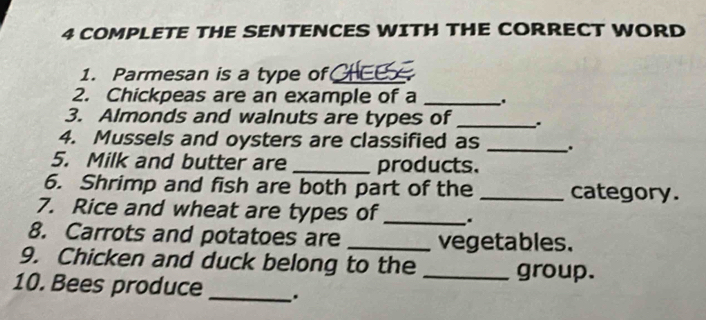 4 COMPLETE THE SENTENCES WITH THE CORRECT WORD
1. Parmesan is a type of CHEESE.
2. Chickpeas are an example of a ______.
3. Almonds and walnuts are types of ______.
4. Mussels and oysters are classified as ______.
5. Milk and butter are ______ products.
6. Shrimp and fish are both part of the ______ category.
7. Rice and wheat are types of ______.
8. Carrots and potatoes are ______ vegetables.
9. Chicken and duck belong to the ______ group.
10. Bees produce ______.